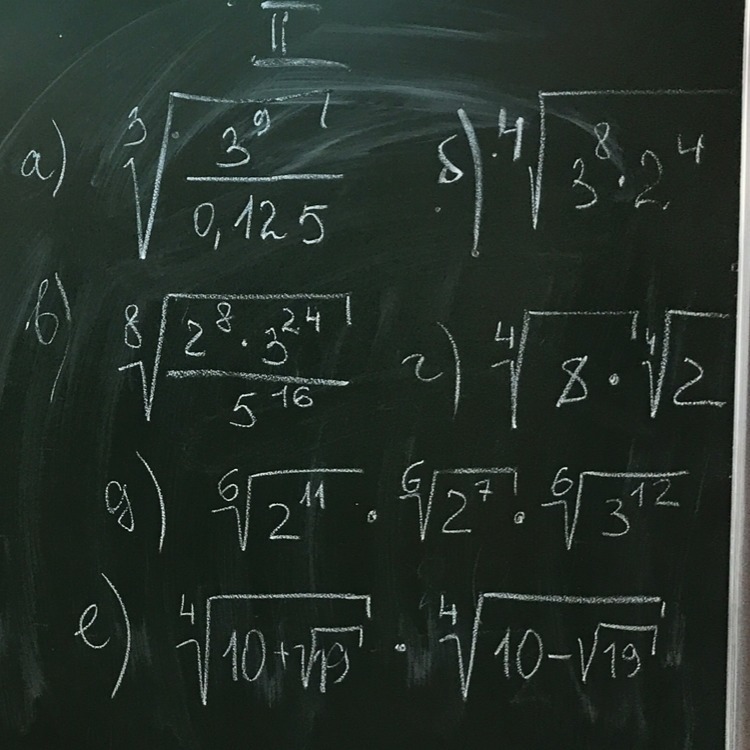 II
а) ∛(3⁹/0,125) б) ∜(3⁸·2⁴)
в) ⁸√(2⁸·3²⁴/5¹⁶) г) ∜8 · ∜2
д) ⁶√2¹¹ · ⁶√2⁷ · ⁶√3¹²
е) ∜(10+√19) · ∜(10−√19)